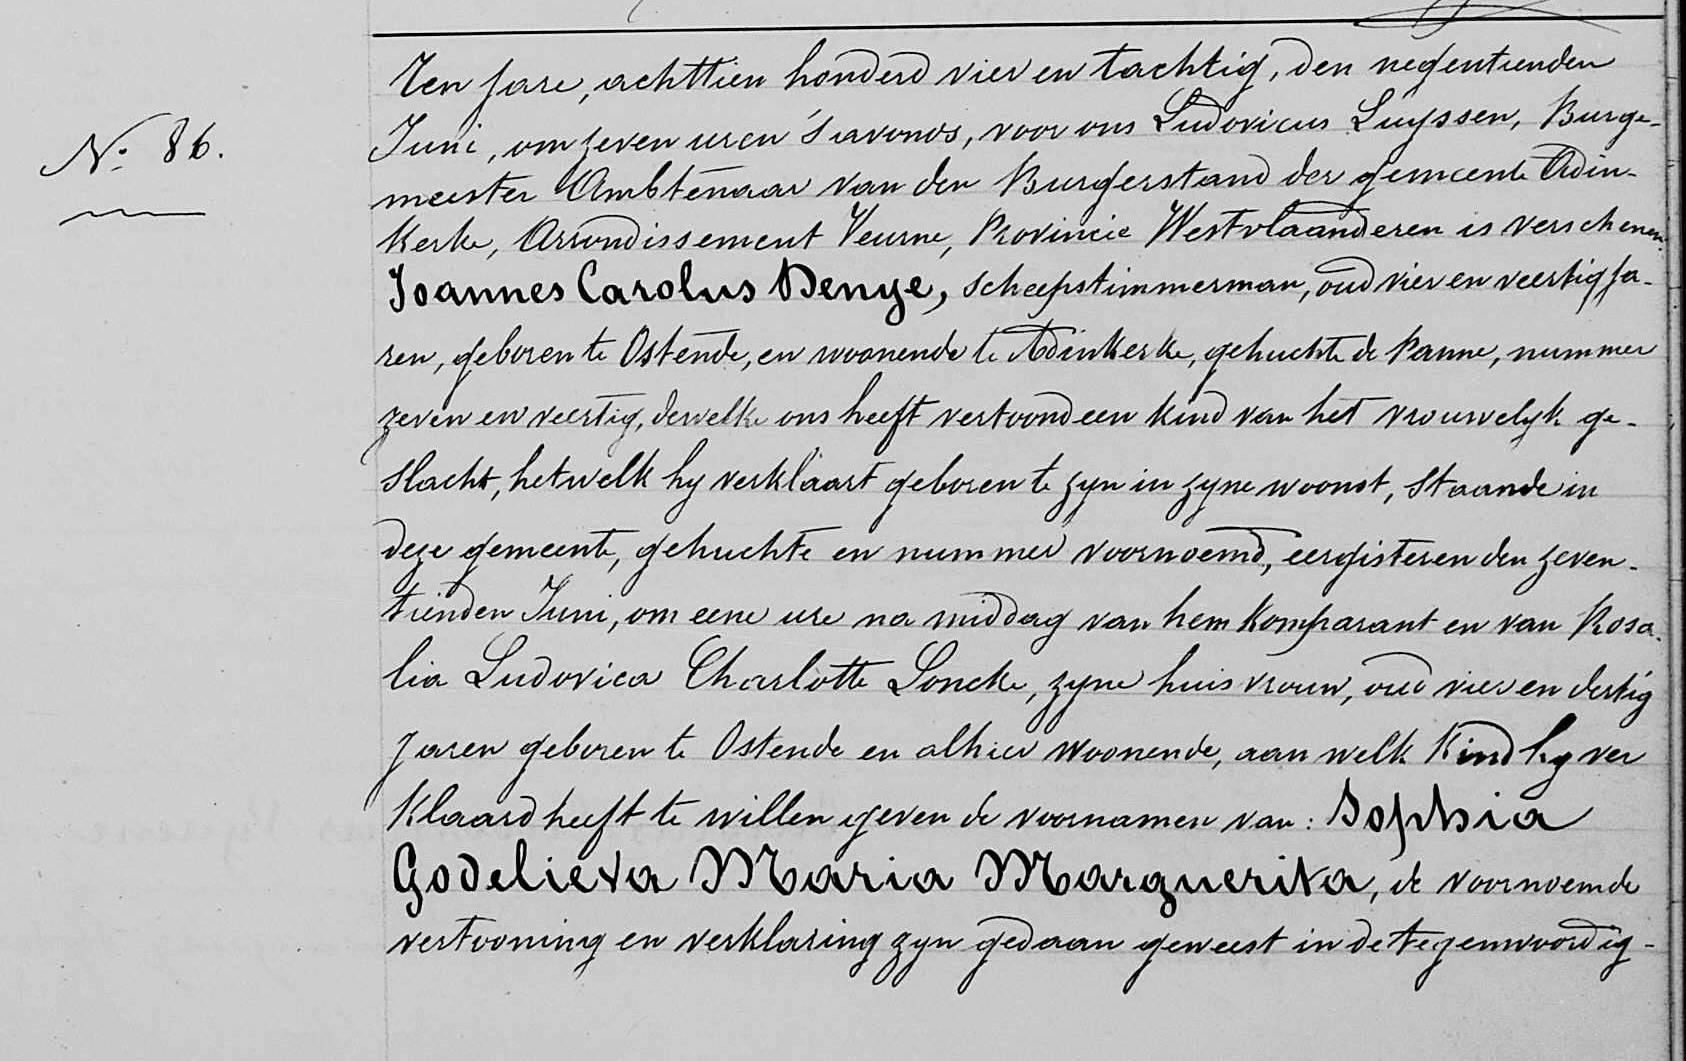 Nº 86.
Ten jare, achttien honderd vier en tachtig, den negentienden
Juni, om zeven uren 's avonds, voor ons Ludovicus Luyssen, Burge-
meester Ambtenaar van den Burgerstand der gemeente Adin-
kerke, Arrondissement Veurne, Provincie Westvlaanderen is verschenen
Joannes Carolus Denye, scheepstimmerman, oud vier en veertig ja-
ren, geboren te Ostende, en woonende te Adinkerke, gehuchte de Panne, nummer
zeven en veertig, dewelke ons heeft vertoond een kind van het vrouwelyk ge-
slacht, hetwelk hy verklaart geboren te zyn in zyne woonst, staande in
deze gemeente, gehuchte en nummer voornoemd, eergisteren den zeven-
tienden Juni, om eene ure na middag van hem komparant en van Rosa-
lia Ludovica Charlotte Loncke, zyne huisvrouw, oud vier en dertig
jaren geboren te Ostende en alhier woonende, aan welk kind hy ver
klaard heeft te willen geven de voornamen van: Sophia
Godelieva Maria Marguerita, de voornoemde
vertooning en verklaring zyn gedaan geweest in de tegenwoordig-